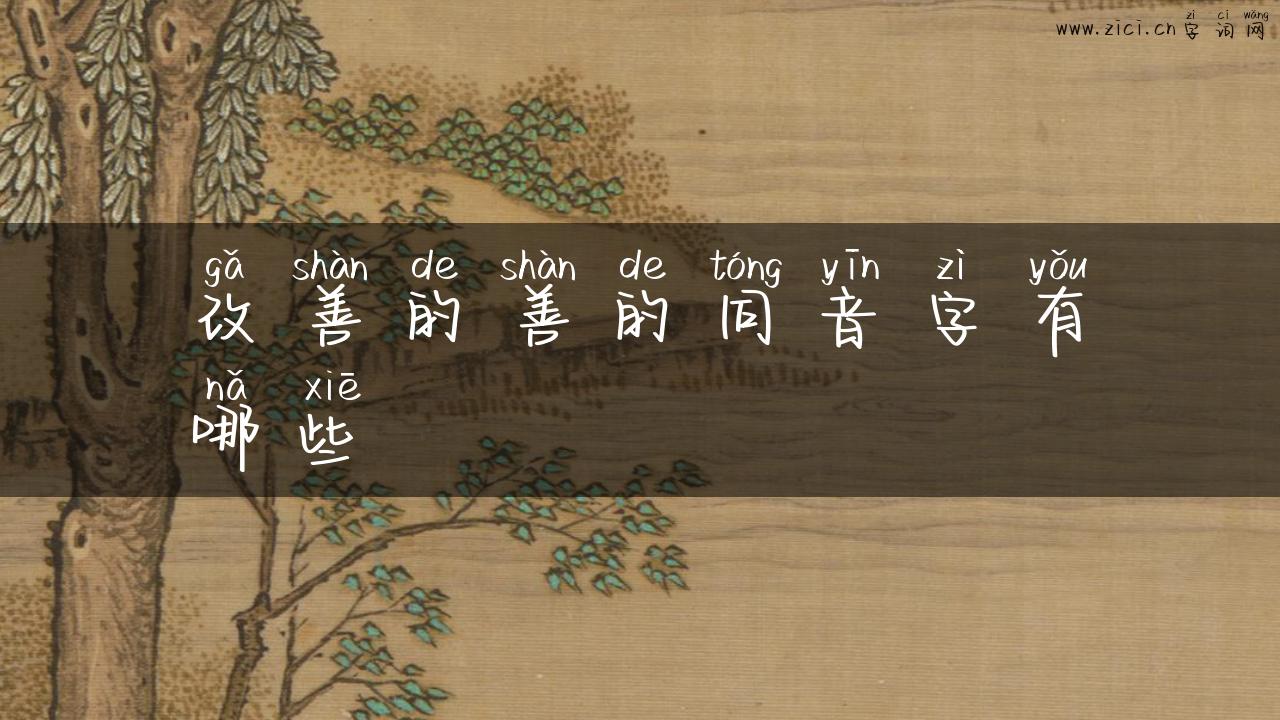 zì cí wǎng
www.zici.cn 字词网
gǎ shàn de shàn de tóng yīn zì yǒu
改善的善的同音字有
nǎ xiē
哪些